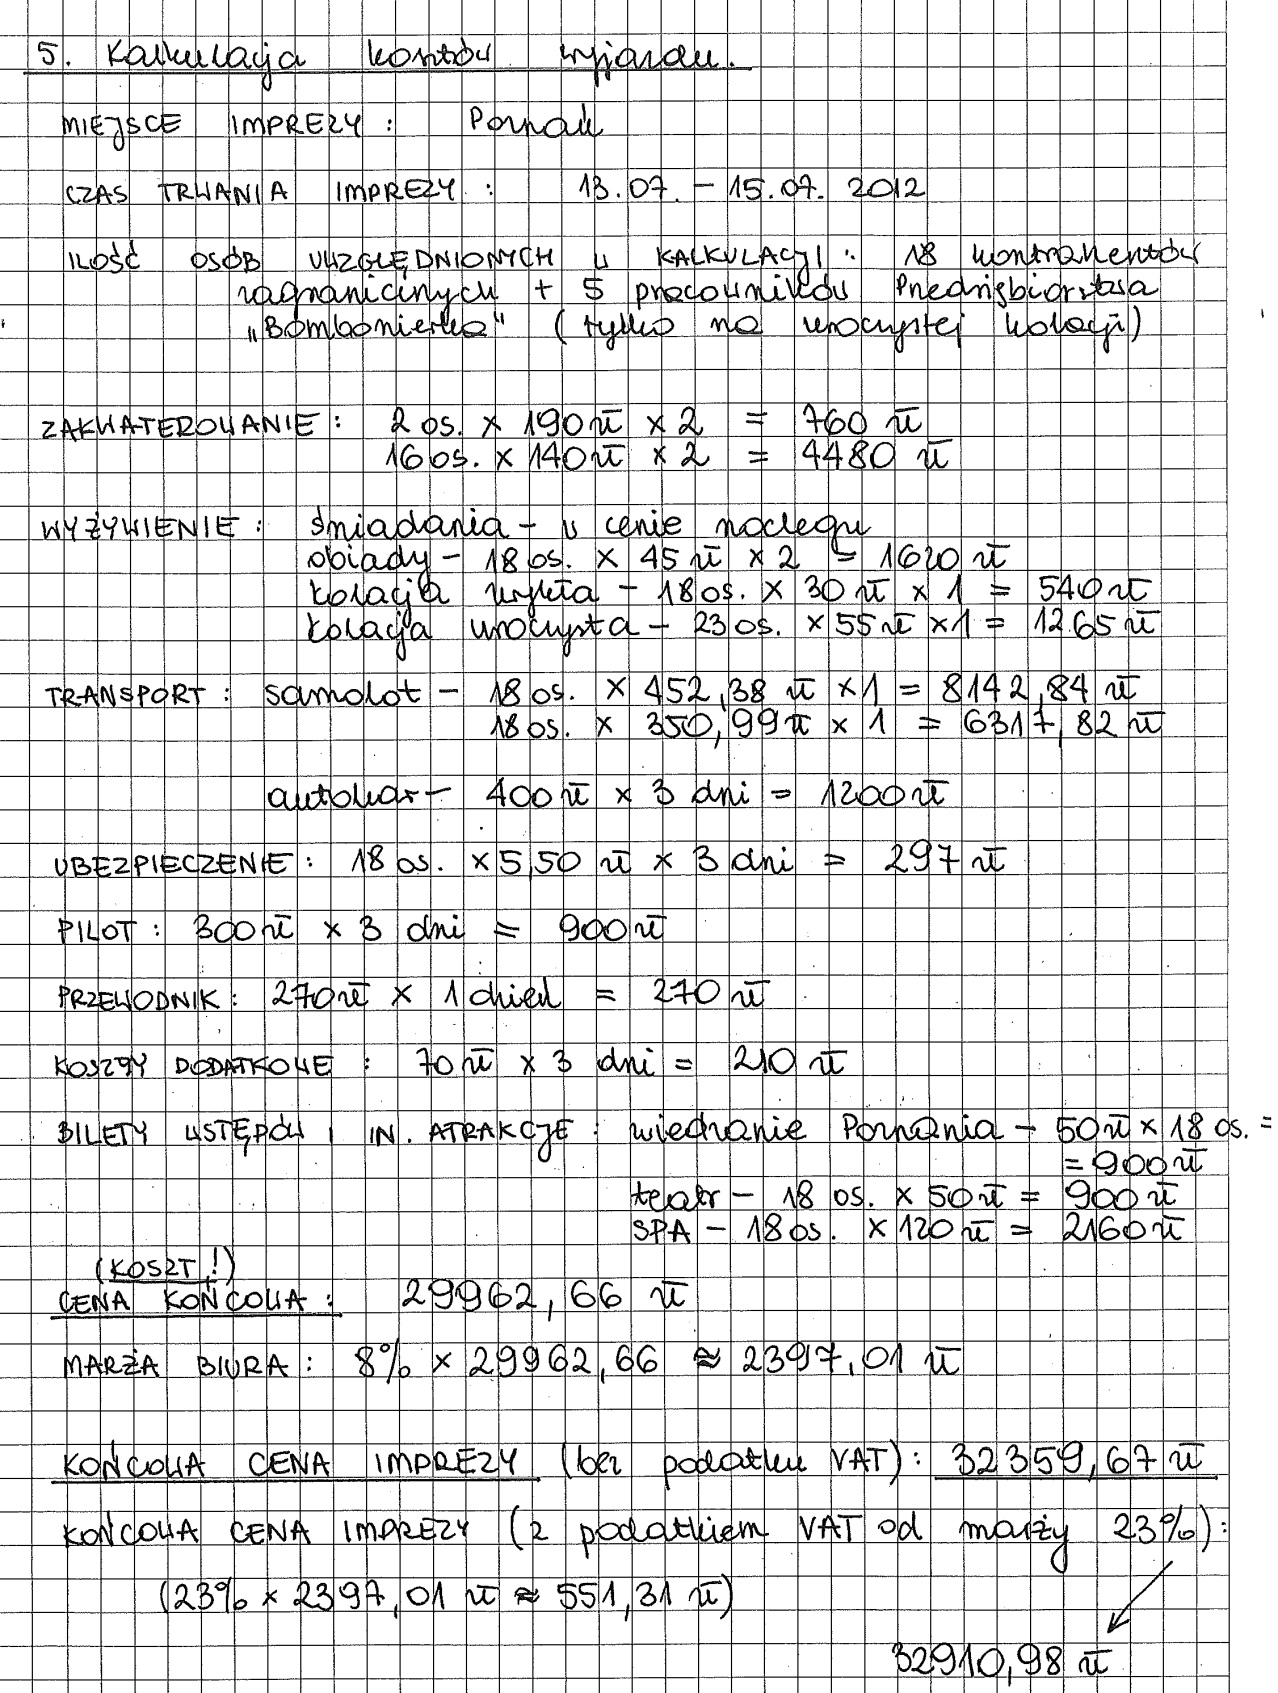 5. Kalkulacja kosztów wyjazdu.
MIEJSCE IMPREZY : Poznań
CZAS TRWANIA IMPREZY : 13.07. – 15.07. 2012
ILOŚĆ OSÓB UWZGLĘDNIONYCH W KALKULACJI : 18 kontrahentów
zagranicznych + 5 pracowników Przedsiębiorstwa
„Bombonierka" (tylko na uroczystej kolacji)
ZAKWATEROWANIE : 2 os. × 190 zł × 2 = 760 zł
16 os. × 140 zł × 2 = 4480 zł
WYŻYWIENIE : śniadania – w cenie noclegu
obiady – 18 os. × 45 zł × 2 = 1620 zł
kolacja zwykła – 18 os. × 30 zł × 1 = 540 zł
kolacja uroczysta – 23 os. × 55 zł × 1 = 1265 zł
TRANSPORT : samolot – 18 os. × 452,38 zł × 1 = 8142,84 zł
18 os. × 350,99 zł × 1 = 6317,82 zł
autokar – 400 zł × 3 dni = 1200 zł
UBEZPIECZENIE : 18 os. × 5,50 zł × 3 dni = 297 zł
PILOT : 300 zł × 3 dni = 900 zł
PRZEWODNIK : 270 zł × 1 dzień = 270 zł
KOSZTY DODATKOWE : 70 zł × 3 dni = 210 zł
BILETY WSTĘPÓW I IN. ATRAKCJE : zwiedzanie Poznania – 50 zł × 18 os. =
= 900 zł
teatr – 18 os. × 50 zł = 900 zł
SPA – 18 os. × 120 zł = 2160 zł
(KOSZT!)
CENA KOŃCOWA : 29962,66 zł
MARŻA BIURA : 8% × 29962,66 ≈ 2397,01 zł
KOŃCOWA CENA IMPREZY (bez podatku VAT) : 32359,67 zł
KOŃCOWA CENA IMPREZY (z podatkiem VAT od marży 23%) :
(23% × 2397,01 zł ≈ 551,31 zł)
32910,98 zł